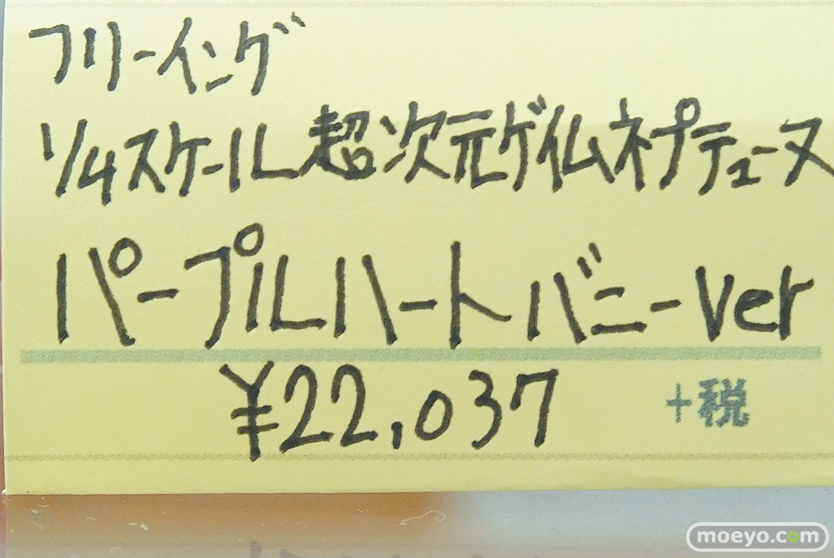 フリーイング
1/4スケール超次元ゲイムネプテューヌ
パープルハートバニーVer
¥22,037 +税
moeyo.com